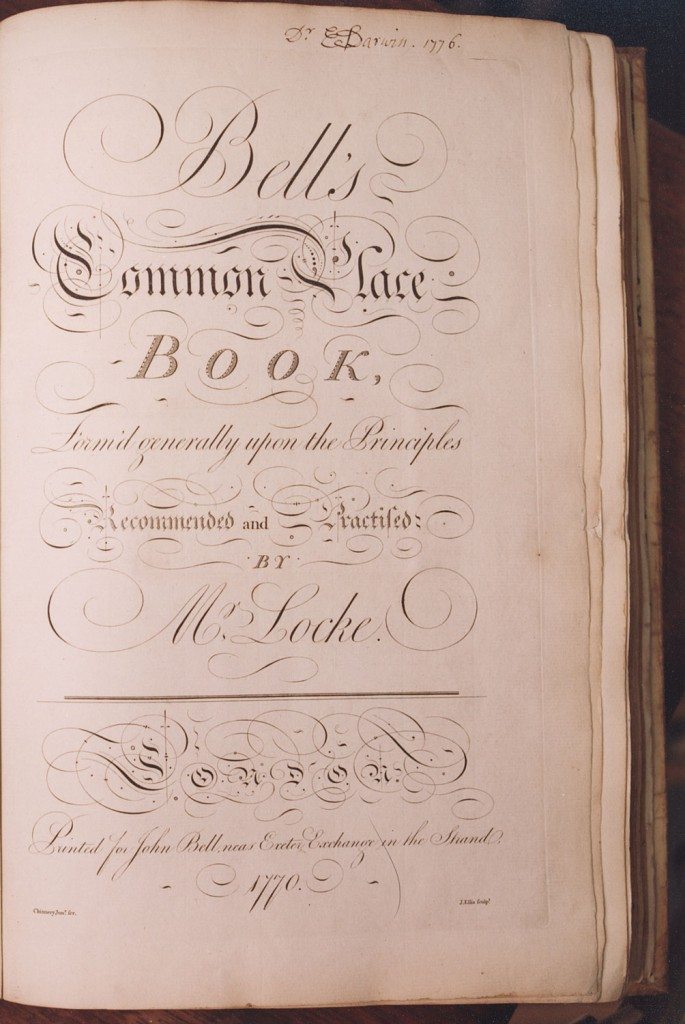 Dr E Darwin. 1776.
Bell's
Common Place
BOOK,
Form'd generally upon the Principles
Recommended and Practised
BY
Mr. Locke.
LONDON:
Printed for John Bell, near Exeter Exchange in the Strand.
1770.
Chinnery Junr. scr.
J. Ellis sculpt.